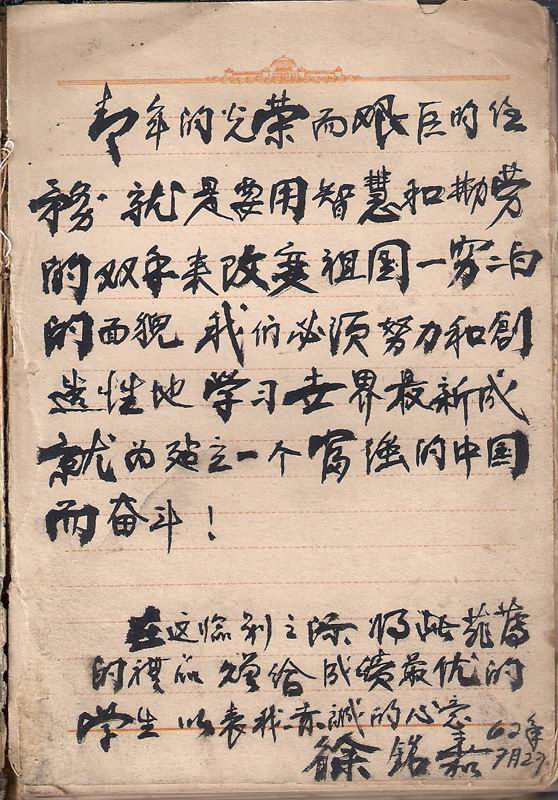 青年的光荣而艰巨的任
务 就是要用智慧和勤劳
的双手来改变祖国一穷二白
的面貌 我们必须努力和創
造性地学习世界最新成
就为建立一个富强的中国
而奋斗！
在这临别之际 将此菲薄
的礼品赠给成绩最优的
学生 以表我赤誠的心意
徐铭 62年
7月27